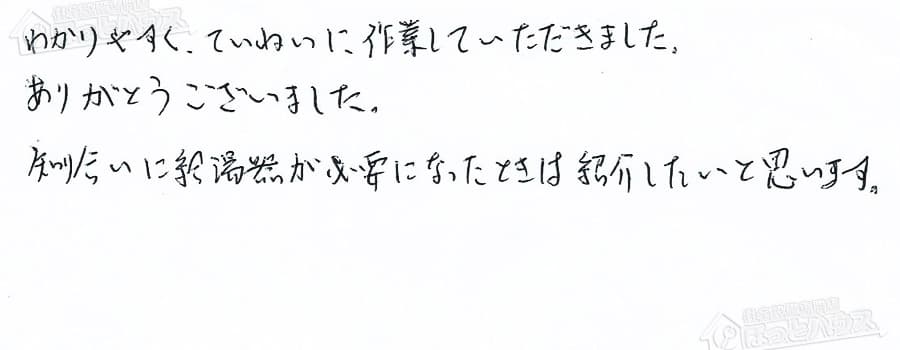 わかりやすく、ていねいに、作業していただきました。
ありがとうございました。
知り合いに給湯器が必要になったときは紹介したいと思います。
ほっとハウス